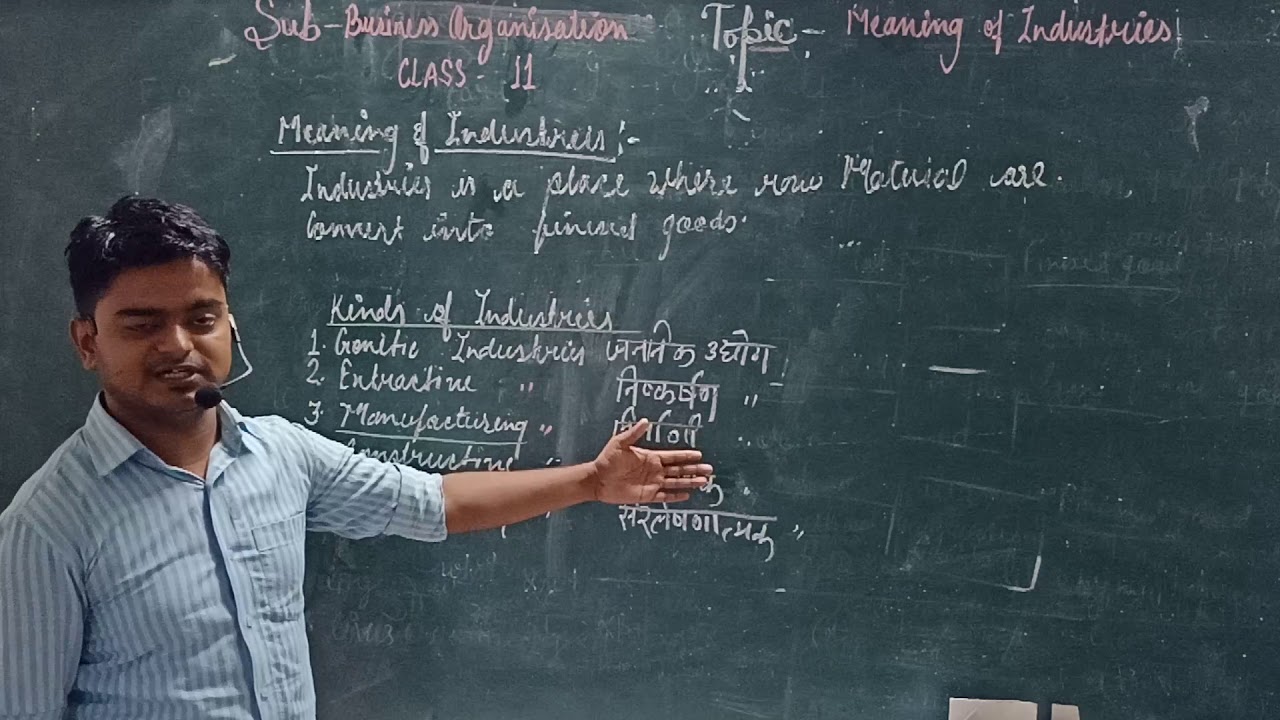 Sub - Business Organisation Topic - Meaning of Industries
CLASS - 11
Meaning of Industries :-
Industries is a place where row Material are.
Convert into finised goods.
Kinds of Industries
1. Genetic Industries जनानिक उद्योग
2. Extractive " निष्कर्षण "
3. Manufacturing "
Constructive "
संश्लेषणात्मक "